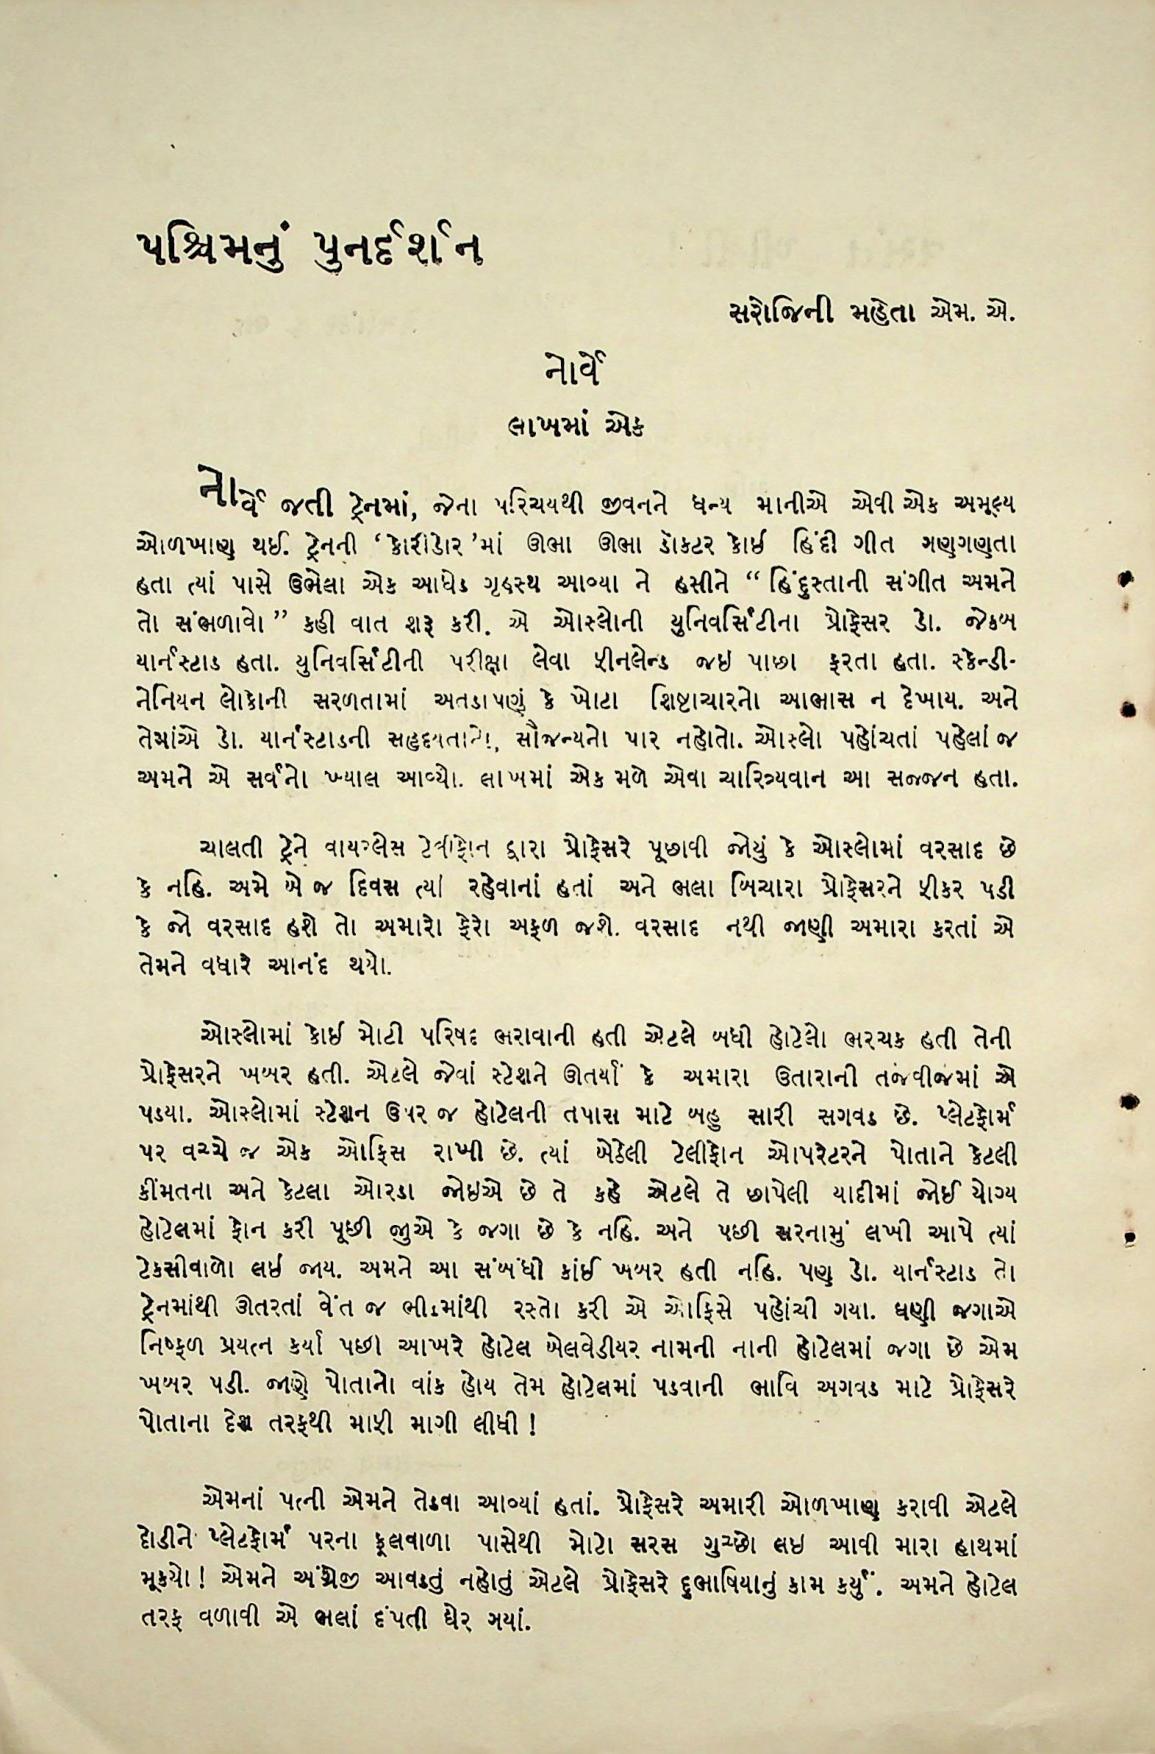 પશ્ચિમનું પુનર્દર્શન
સરોજિની મહેતા એમ. એ.
નોર્વે
લાખમાં એક
નોર્વે જતી ટ્રેનમાં, જેના પરિચયથી જીવનને ધન્ય માનીએ એવી એક અમૂલ્ય
ઓળખાણ થઈ. ટ્રેનની ‘કોરીડોર’માં ઊભા ઊભા ડૉક્ટર કોઈ હિંદી ગીત ગણગણતા
હતા ત્યાં પાસે ઉભેલા એક આધેડ ગૃહસ્થ આવ્યા ને હસીને “હિંદુસ્તાની સંગીત અમને
તો સંભળાવો” કહી વાત શરૂ કરી. એ ઓસ્લોની યુનિવર્સિટીના પ્રોફેસર ડો. જેકબ
યાર્નસ્ટાડ હતા. યુનિવર્સિટીની પરીક્ષા લેવા ફીનલેન્ડ જઇ પાછા ફરતા હતા. સ્કેન્ડી-
નેનિયન લોકોની સરળતામાં અતડાપણું કે ખોટા શિષ્ટાચારનો આભાસ ન દેખાય. અને
તેમાંએ ડો. યાર્નસ્ટાડની સહૃદયતાનો, સૌજન્યનો પાર નહોતો. ઓસ્લો પહોંચતાં પહેલાં જ
અમને એ સર્વનો ખ્યાલ આવ્યો. લાખમાં એક મળે એવા ચારિત્ર્યવાન આ સજ્જન હતા.
ચાલતી ટ્રેને વાયરલેસ ટેલીફોન દ્વારા પ્રોફેસરે પૂછાવી જોયું કે ઓસ્લોમાં વરસાદ છે
કે નહિ. અમે બે જ દિવસ ત્યાં રહેવાનાં હતાં અને ભલા બિચારા પ્રોફેસરને ફીકર પડી
કે જો વરસાદ હશે તો અમારો ફેરો અફળ જશે. વરસાદ નથી જાણી અમારા કરતાં એ
તેમને વધારે આનંદ થયો.
ઓસ્લોમાં કોઇ મોટી પરિષદ ભરાવાની હતી એટલે બધી હોટેલો ભરચક હતી તેની
પ્રોફેસરને ખબર હતી. એટલે જેવાં સ્ટેશને ઊતર્યાં કે અમારા ઉતારાની તજવીજમાં એ
પડયા. ઓસ્લોમાં સ્ટેશન ઉપર જ હોટેલની તપાસ માટે બહુ સારી સગવડ છે. પ્લેટફોર્મ
પર વચ્ચે જ એક ઑફિસ રાખી છે. ત્યાં બેઠેલી ટેલીફોન ઓપરેટરને પોતાને કેટલી
કીંમતના અને કેટલા ઓરડા જોઇએ છે તે કહે એટલે તે છાપેલી યાદીમાં જોઈ યોગ્ય
હોટેલમાં ફોન કરી પૂછી જુએ કે જગા છે કે નહિ. અને પછી સરનામું લખી આપે ત્યાં
ટેકસીવાળો લઇ જાય. અમને આ સંબંધી કાંઈ ખબર હતી નહિ. પણ ડો. યાર્નસ્ટાડ તો
ટ્રેનમાંથી ઊતરતાં વેંત જ ભીડમાંથી રસ્તો કરી એ ઓફિસે પહોંચી ગયા. ઘણી જગાએ
નિષ્ફળ પ્રયત્ન કર્યા પછી આખરે હોટેલ બેલવેડીયર નામની નાની હોટેલમાં જગા છે એમ
ખબર પડી. જાણે પોતાનો વાંક હોય તેમ હોટેલમાં પડવાની ભાવિ અગવડ માટે પ્રોફેસરે
પોતાના દેશ તરફથી માફી માગી લીધી !
એમનાં પત્ની એમને તેડવા આવ્યાં હતાં. પ્રોફેસરે અમારી ઓળખાણ કરાવી એટલે
દોડીને પ્લેટફોર્મ પરના ફૂલવાળા પાસેથી મોટો સરસ ગુચ્છો લઇ આવી મારા હાથમાં
મૂકયો! એમને અંગ્રેજી આવડતું નહોતું એટલે પ્રોફેસરે દુભાષિયાનું કામ કર્યું. અમને હોટેલ
તરફ વળાવી એ ભલાં દંપતી ઘેર ગયાં.